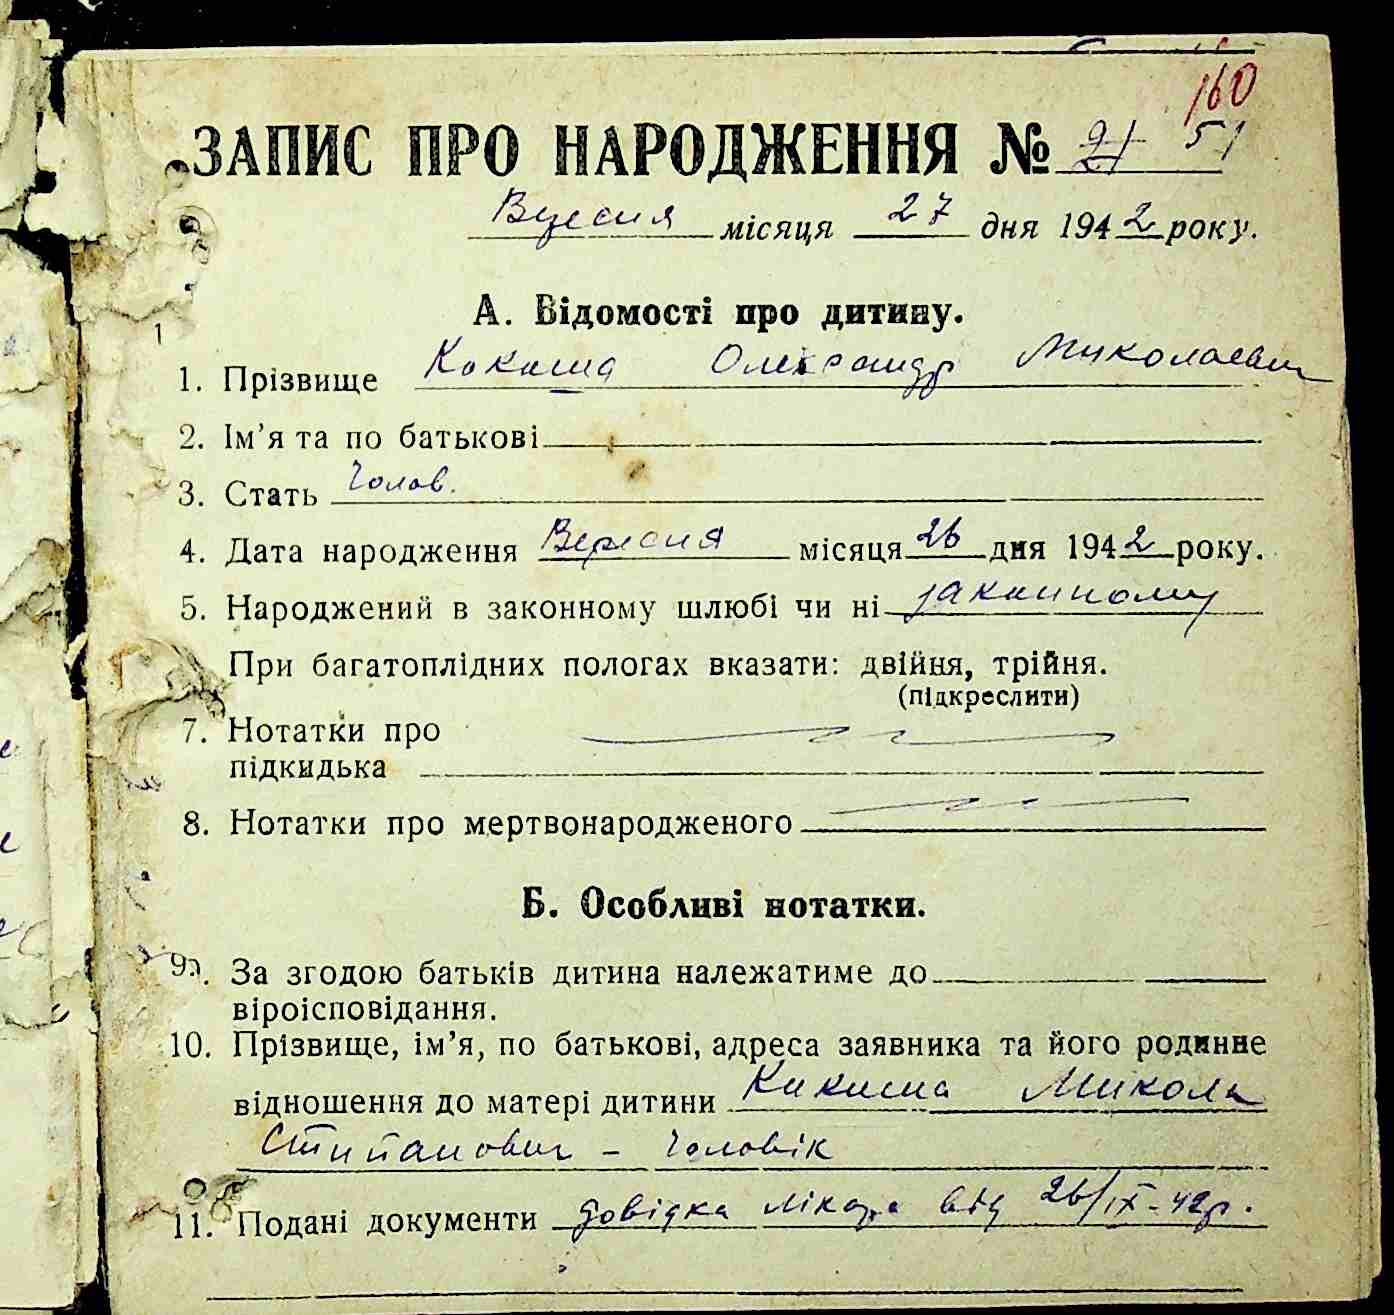 160
ЗАПИС ПРО НАРОДЖЕННЯ № 21 51
Вересня місяця 27 дня 1942 року.
А. Відомості про дитину.
1. Прізвище Кокоша Олександр Миколаевич
2. Ім'я та по батькові
3. Стать Чолов.
4. Дата народження Вересня місяця 26 дня 1942 року.
5. Народжений в законному шлюбі чи ні законному
При багатоплідних пологах вказати: двійня, трійня.
(підкреслити)
7. Нотатки про
підкидька
8. Нотатки про мертвонародженого
Б. Особливі нотатки.
9. За згодою батьків дитина належатиме до
віроісповідання.
10. Прізвище, ім'я, по батькові, адреса заявника та його родинне
відношення до матері дитини Микола
Степанович - Чоловік
11. Подані документи довідка лікаря від 26/IX-42р.